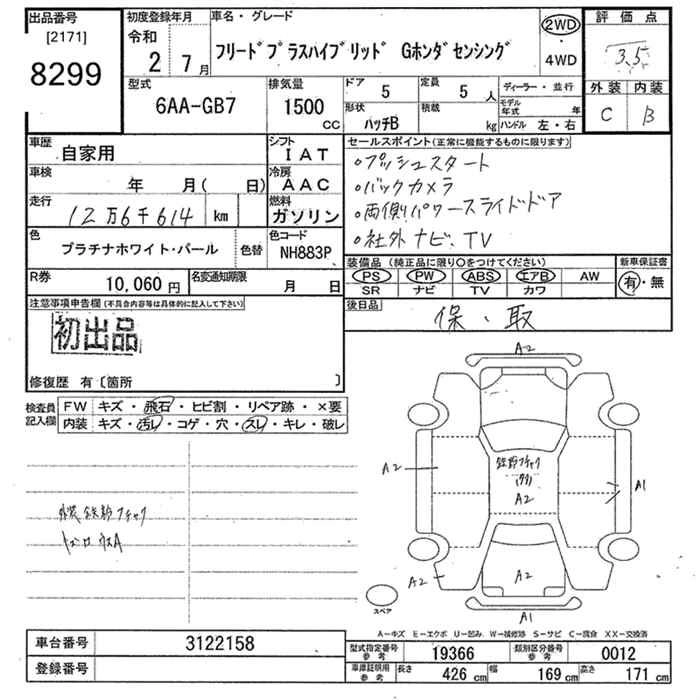 出品番号 [2171] 8299
初度登録年月 令和 2 7月
車名・グレード フリードプラスハイブリッド Gホンダセンシング
2WD・4WD
評価点 3.5
外装 内装
C B
型式 6AA-GB7
排気量 1500 CC
ドア 5
定員 5 人
形状 ハッチB
積載 kg
ディーラー・並行
モデル年式 年
ハンドル 左・右
車歴 自家用
シフト IAT
車検 年 月( 日)
冷房 AAC
走行 12万6千614 km
燃料 ガソリン
色 プラチナホワイト・パール
色替
色コード NH883P
R券 10,060 円
名変通知期限 月 日
セールスポイント(正常に機能するものに限ります)
。プッシュスタート
。バックカメラ
。両側パワースライドドア
。社外ナビ、TV
装備品(純正品に限り○をつけてください)
PS PW ABS エアB AW
SR ナビ TV カワ
新車保証書
有・無
後日品
保・取
注意事項申告欄(不具合内容等は具体的に記入して下さい)
初出品
修復歴 有〔箇所 〕
検査員記入欄
FW キズ・飛石・ヒビ割・リペア跡・×要
内装 キズ・汚レ・コゲ・穴・スレ・キレ・破レ
外装 鉄粉フチャク
A2
鉄粉フチャク
A2
A2
A1
A2
A2
A1
スペア
A-キズ E-エクボ U-凹み W-補修跡 S-サビ C-腐食 XX-交換済
車台番号 3122158
登録番号
型式指定番号参考 19366
類別区分番号参考 0012
車庫証明用参考 長さ 426 cm 幅 169 cm 高さ 171 cm